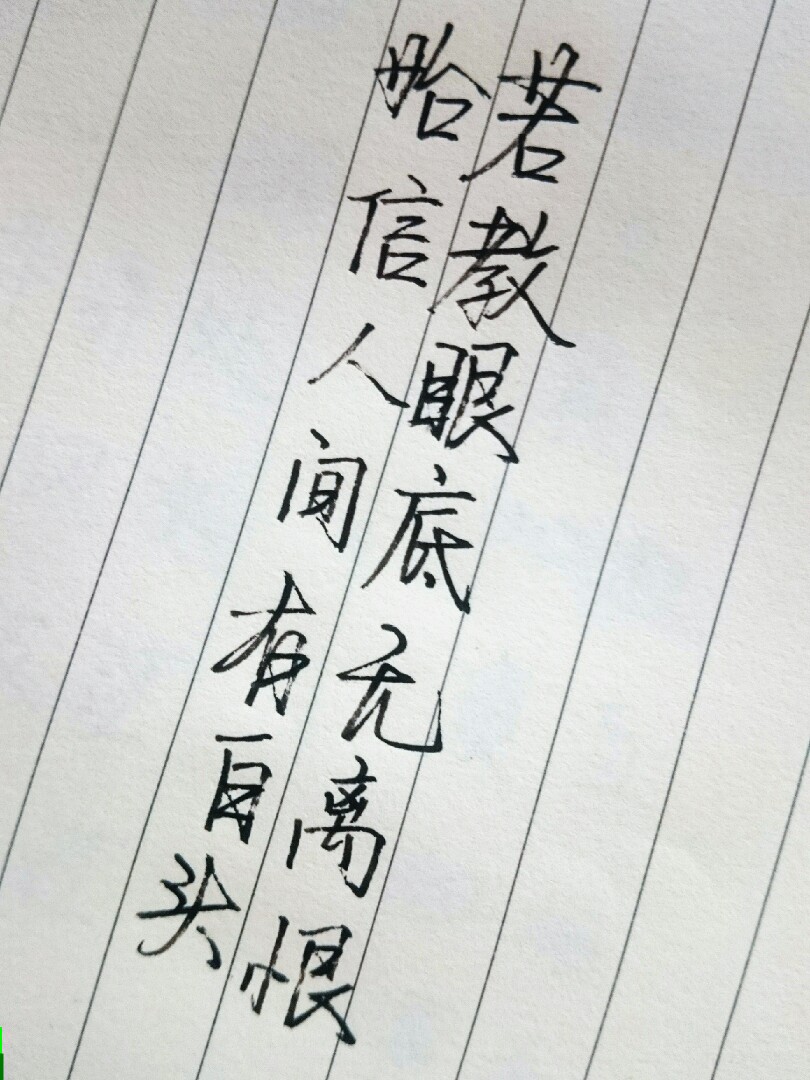 若教眼底无离恨
始信人间有百头